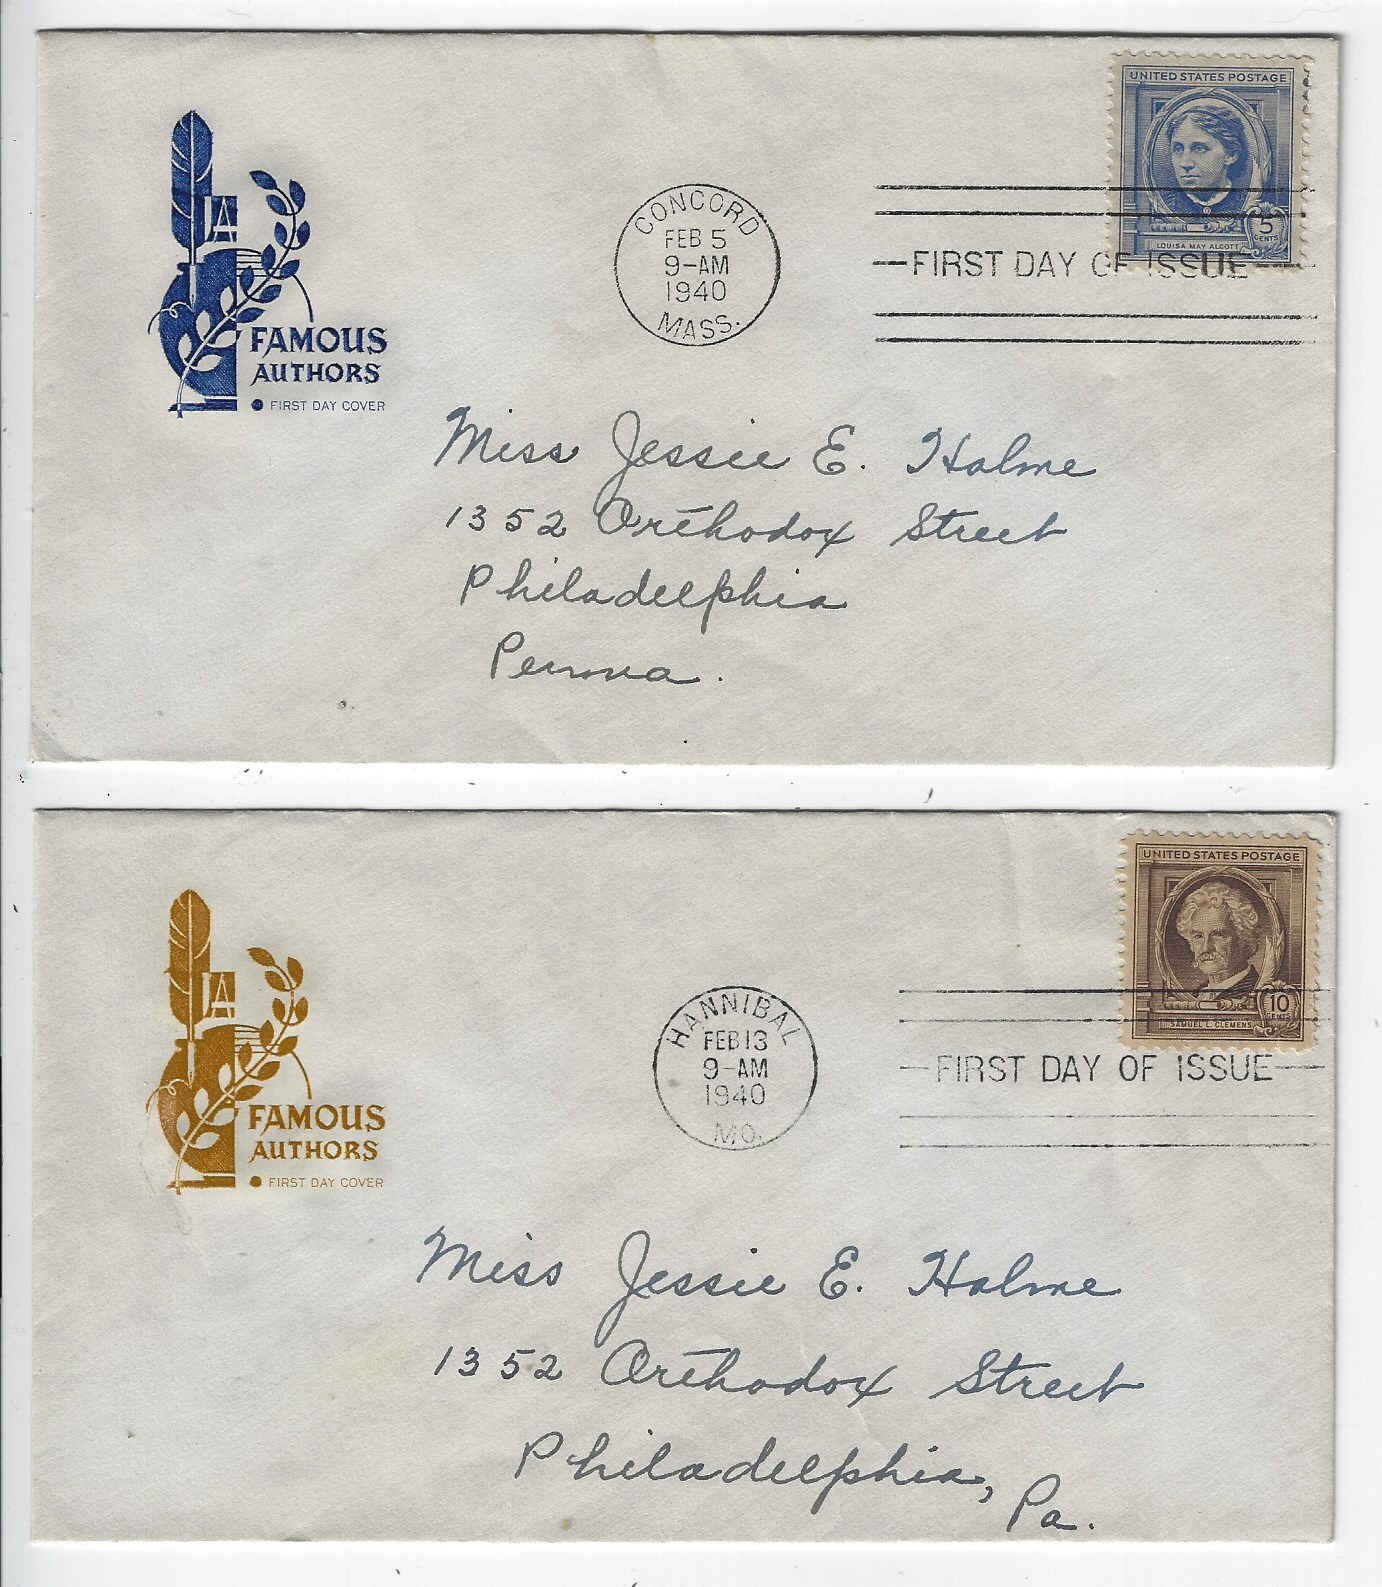 UNITED STATES POSTAGE
LOUISA MAY ALCOTT
5 CENTS
CONCORD
FEB 5
9-AM
1940
MASS.
FIRST DAY OF ISSUE
FAMOUS
AUTHORS
FIRST DAY COVER
Miss Jessie E. Holme
1352 Orthodox Street
Philadelphia
Penna.
UNITED STATES POSTAGE
SAMUEL L. CLEMENS
10 CENTS
HANNIBAL
FEB 13
9-AM
1940
MO.
FIRST DAY OF ISSUE
FAMOUS
AUTHORS
FIRST DAY COVER
Miss Jessie E. Holme
1352 Orthodox Street
Philadelphia,
Pa.